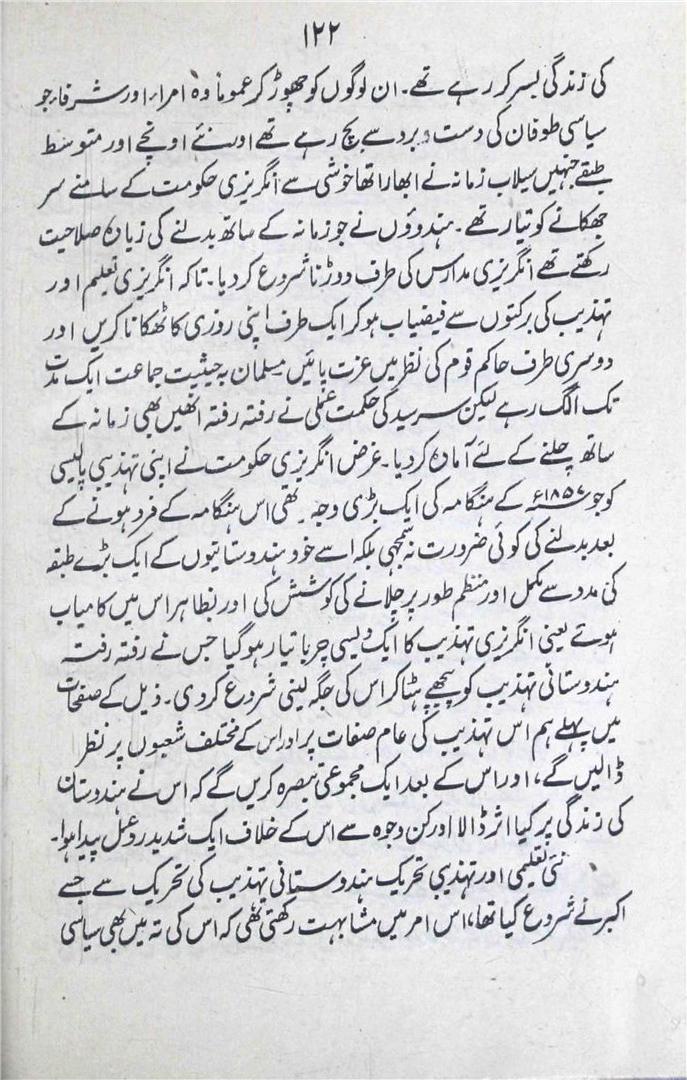 ۱۲۲
کی زندگی بسر کر رہے تھے۔ ان لوگوں کو چھوڑ کر عموماً وہ امراء اور شرفاء جو
سیاسی طوفان کی دست و برد سے بچ رہے تھے اور نئے اونچے اور متوسط
طبقے جنہیں سیلاب زمانہ نے ابھارا تھا خوشی سے انگریزی حکومت کے سامنے سر
جھکانے کو تیار تھے۔ ہندوؤں نے جو زمانہ کے ساتھ بدلنے کی زیادہ صلاحیت
رکھتے تھے انگریزی مدارس کی طرف دوڑنا شروع کر دیا۔ تاکہ انگریزی تعلیم اور
تہذیب کی برکتوں سے فیضیاب ہو کر ایک طرف اپنی روزی کا ٹھکانا کریں اور
دوسری طرف حاکم قوم کی نظر میں عزت پائیں مسلمان بہ حیثیت جماعت ایک مدت
تک الگ رہے لیکن سرسید کی حکمت عملی نے رفتہ رفتہ انھیں بھی زمانہ کے
ساتھ چلنے کے لئے آمادہ کر دیا۔ غرض انگریزی حکومت نے اپنی تہذیبی پالیسی
کو جو ۱۸۵۷ء کے ہنگامہ کی ایک بڑی وجہ تھی اس ہنگامہ کے فرو ہونے کے
بعد بدلنے کی کوئی ضرورت نہ سمجھی بلکہ اسے خود ہندوستانیوں کے ایک بڑے طبقہ
کی مدد سے مکمل اور منظم طور پر چلانے کی کوشش کی اور بظاہر اس میں کامیاب
ہوئے یعنی انگریزی تہذیب کا ایک دیسی چربا تیار ہو گیا جس نے رفتہ رفتہ
ہندوستانی تہذیب کو پیچھے ہٹا کر اس کی جگہ لینی شروع کر دی۔ ذیل کے صفحات
میں پہلے ہم اس تہذیب کی عام صفات پر اور اس کے مختلف شعبوں پر نظر
ڈالیں گے، اور اس کے بعد ایک مجموعی تبصرہ کریں گے کہ اس نے ہندوستان
کی زندگی پر کیا اثر ڈالا اور کن وجوہ سے اس کے خلاف ایک شدید ردعمل پیدا ہوا۔
نئی تعلیمی اور تہذیبی تحریک ہندوستانی تہذیب کی تحریک سے جسے
اکبر نے شروع کیا تھا، اس امر میں مشابہت رکھتی تھی کہ اس کی تہ میں بھی سیاسی